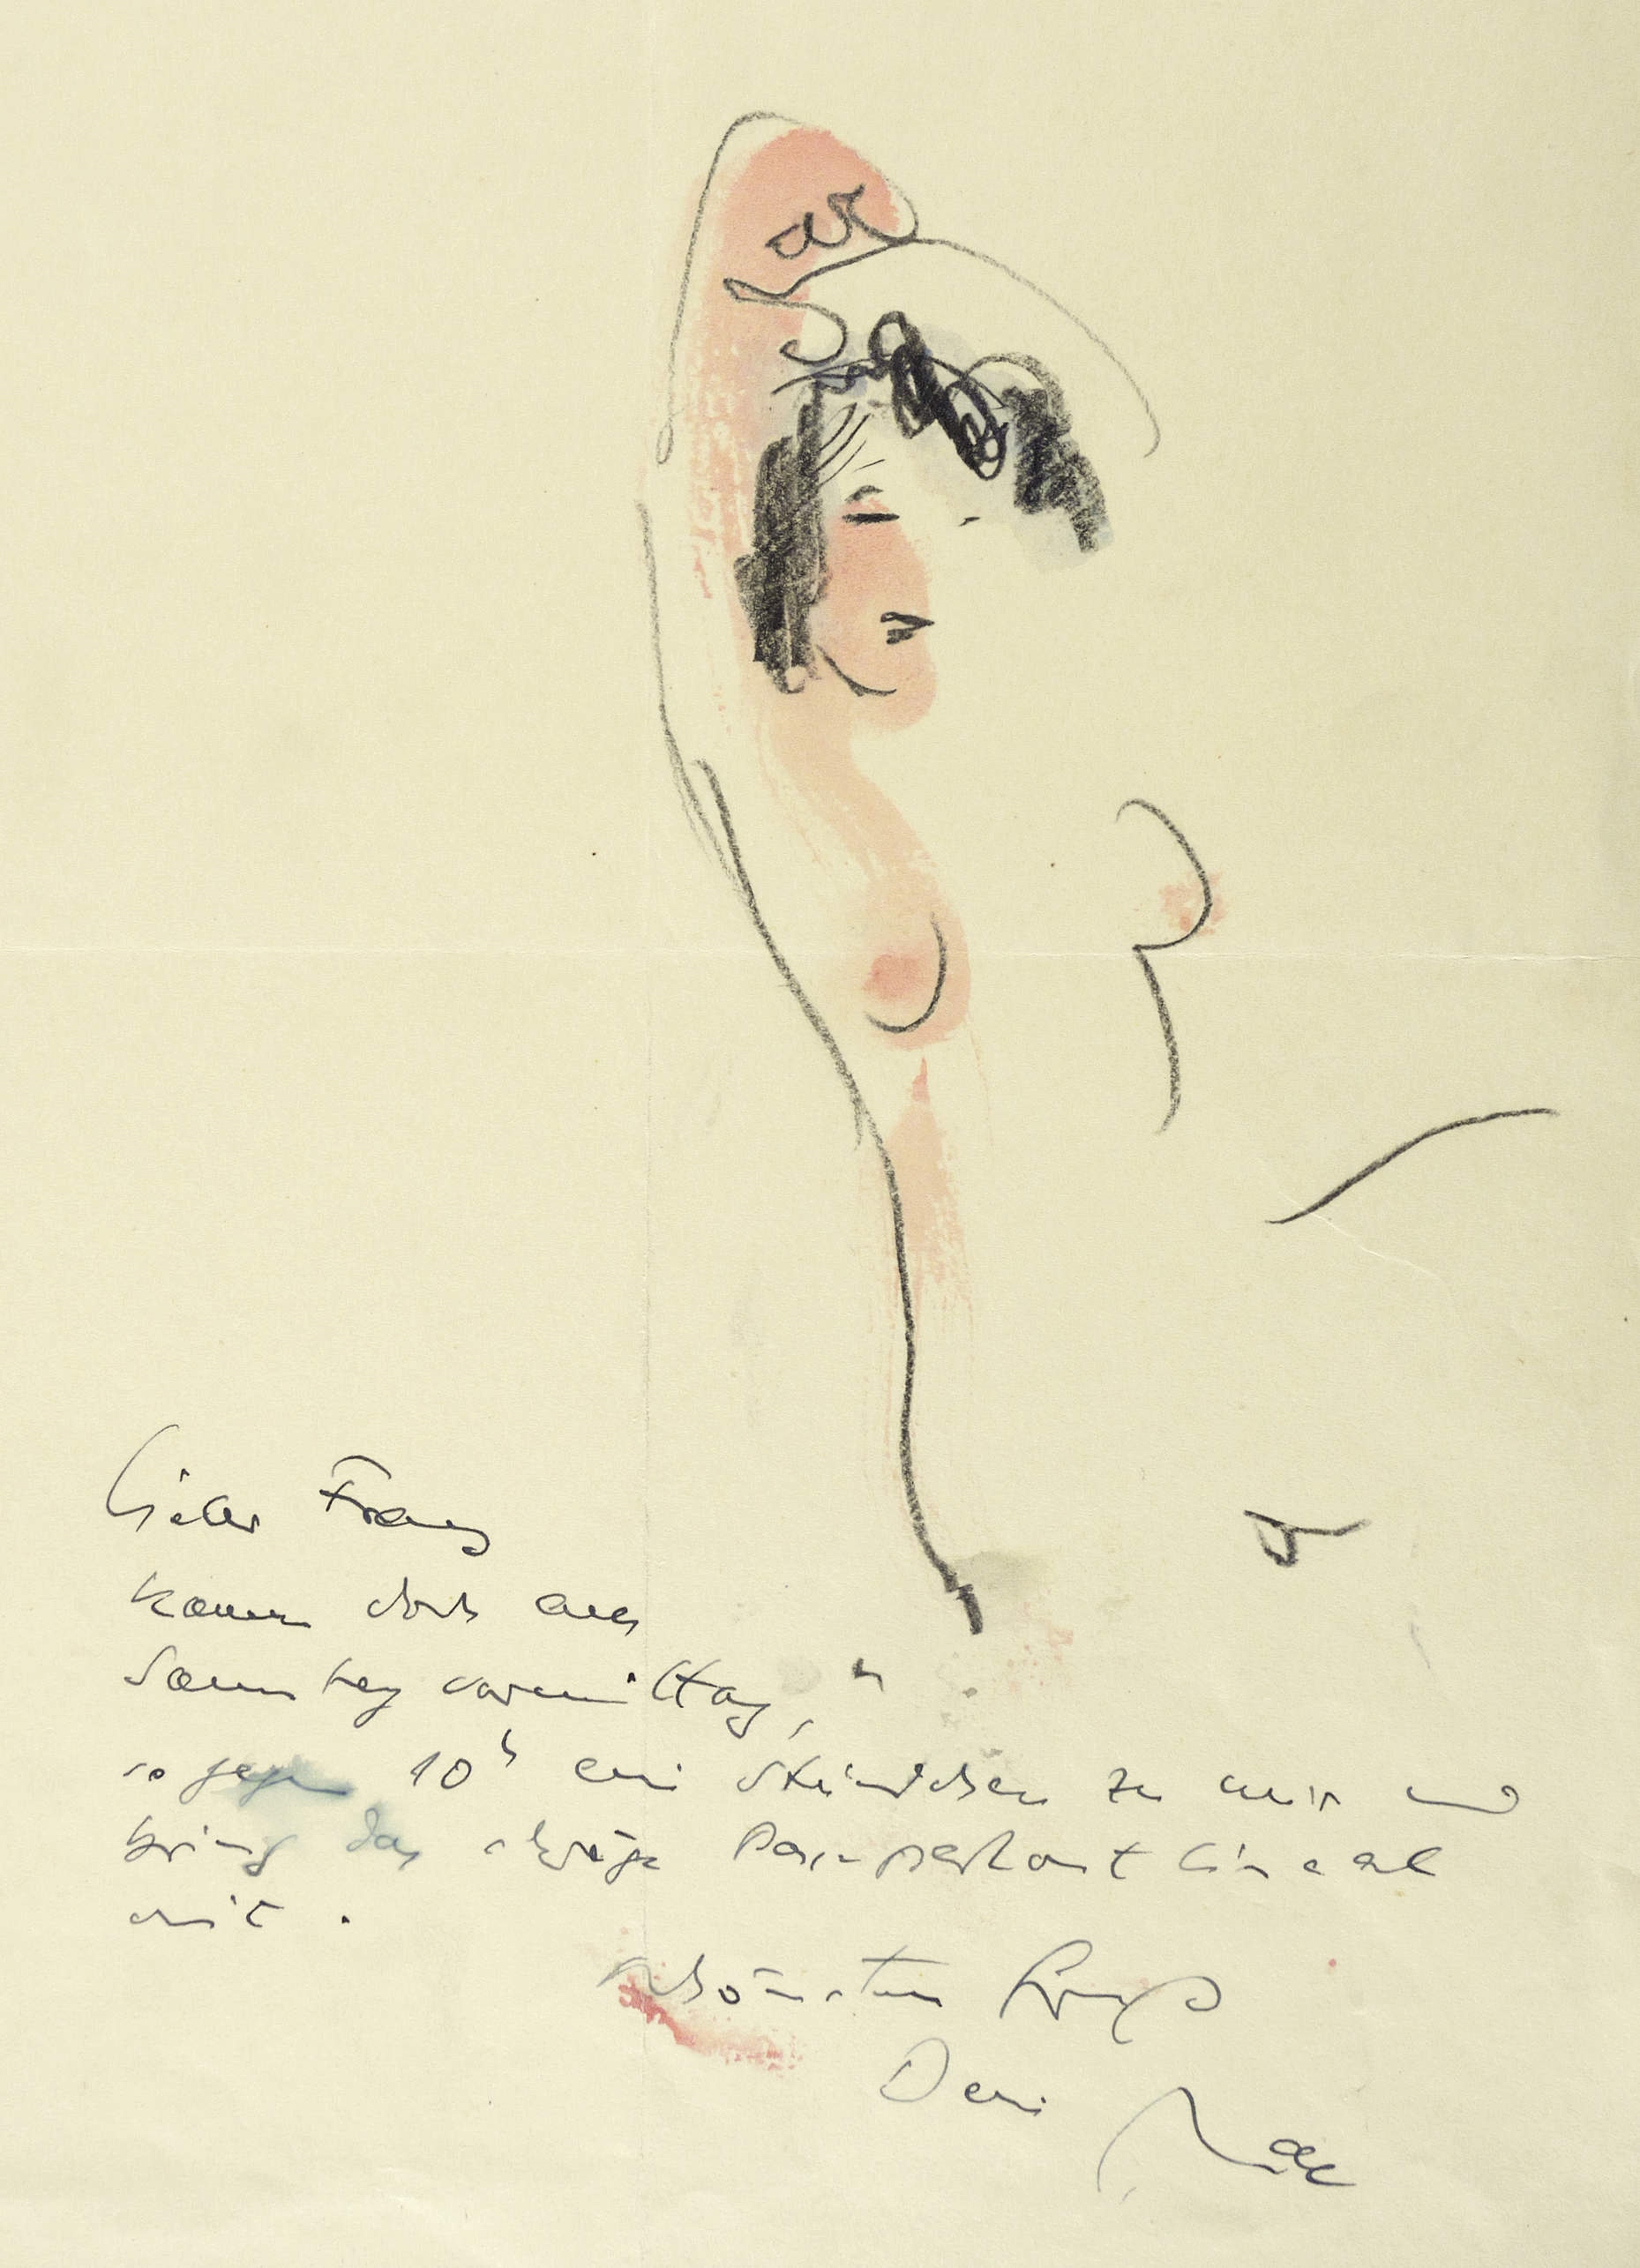 Lieber Franz
komm doch am
Sonntag vormittag,
so gegen 10h ein Stündchen zu mir und
bring das schräge Passepartout Lineal
mit.
Schönsten Gruß
Dein